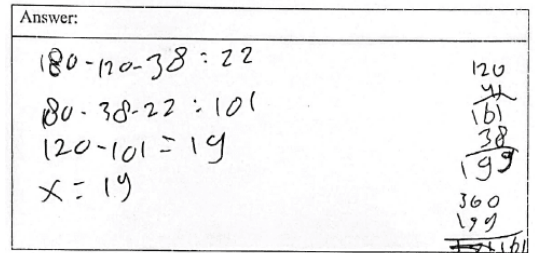 Answer:
180-120-38:22
180-38-22:101
120-101=19
x=19
120
41
161
38
199
360
199
161